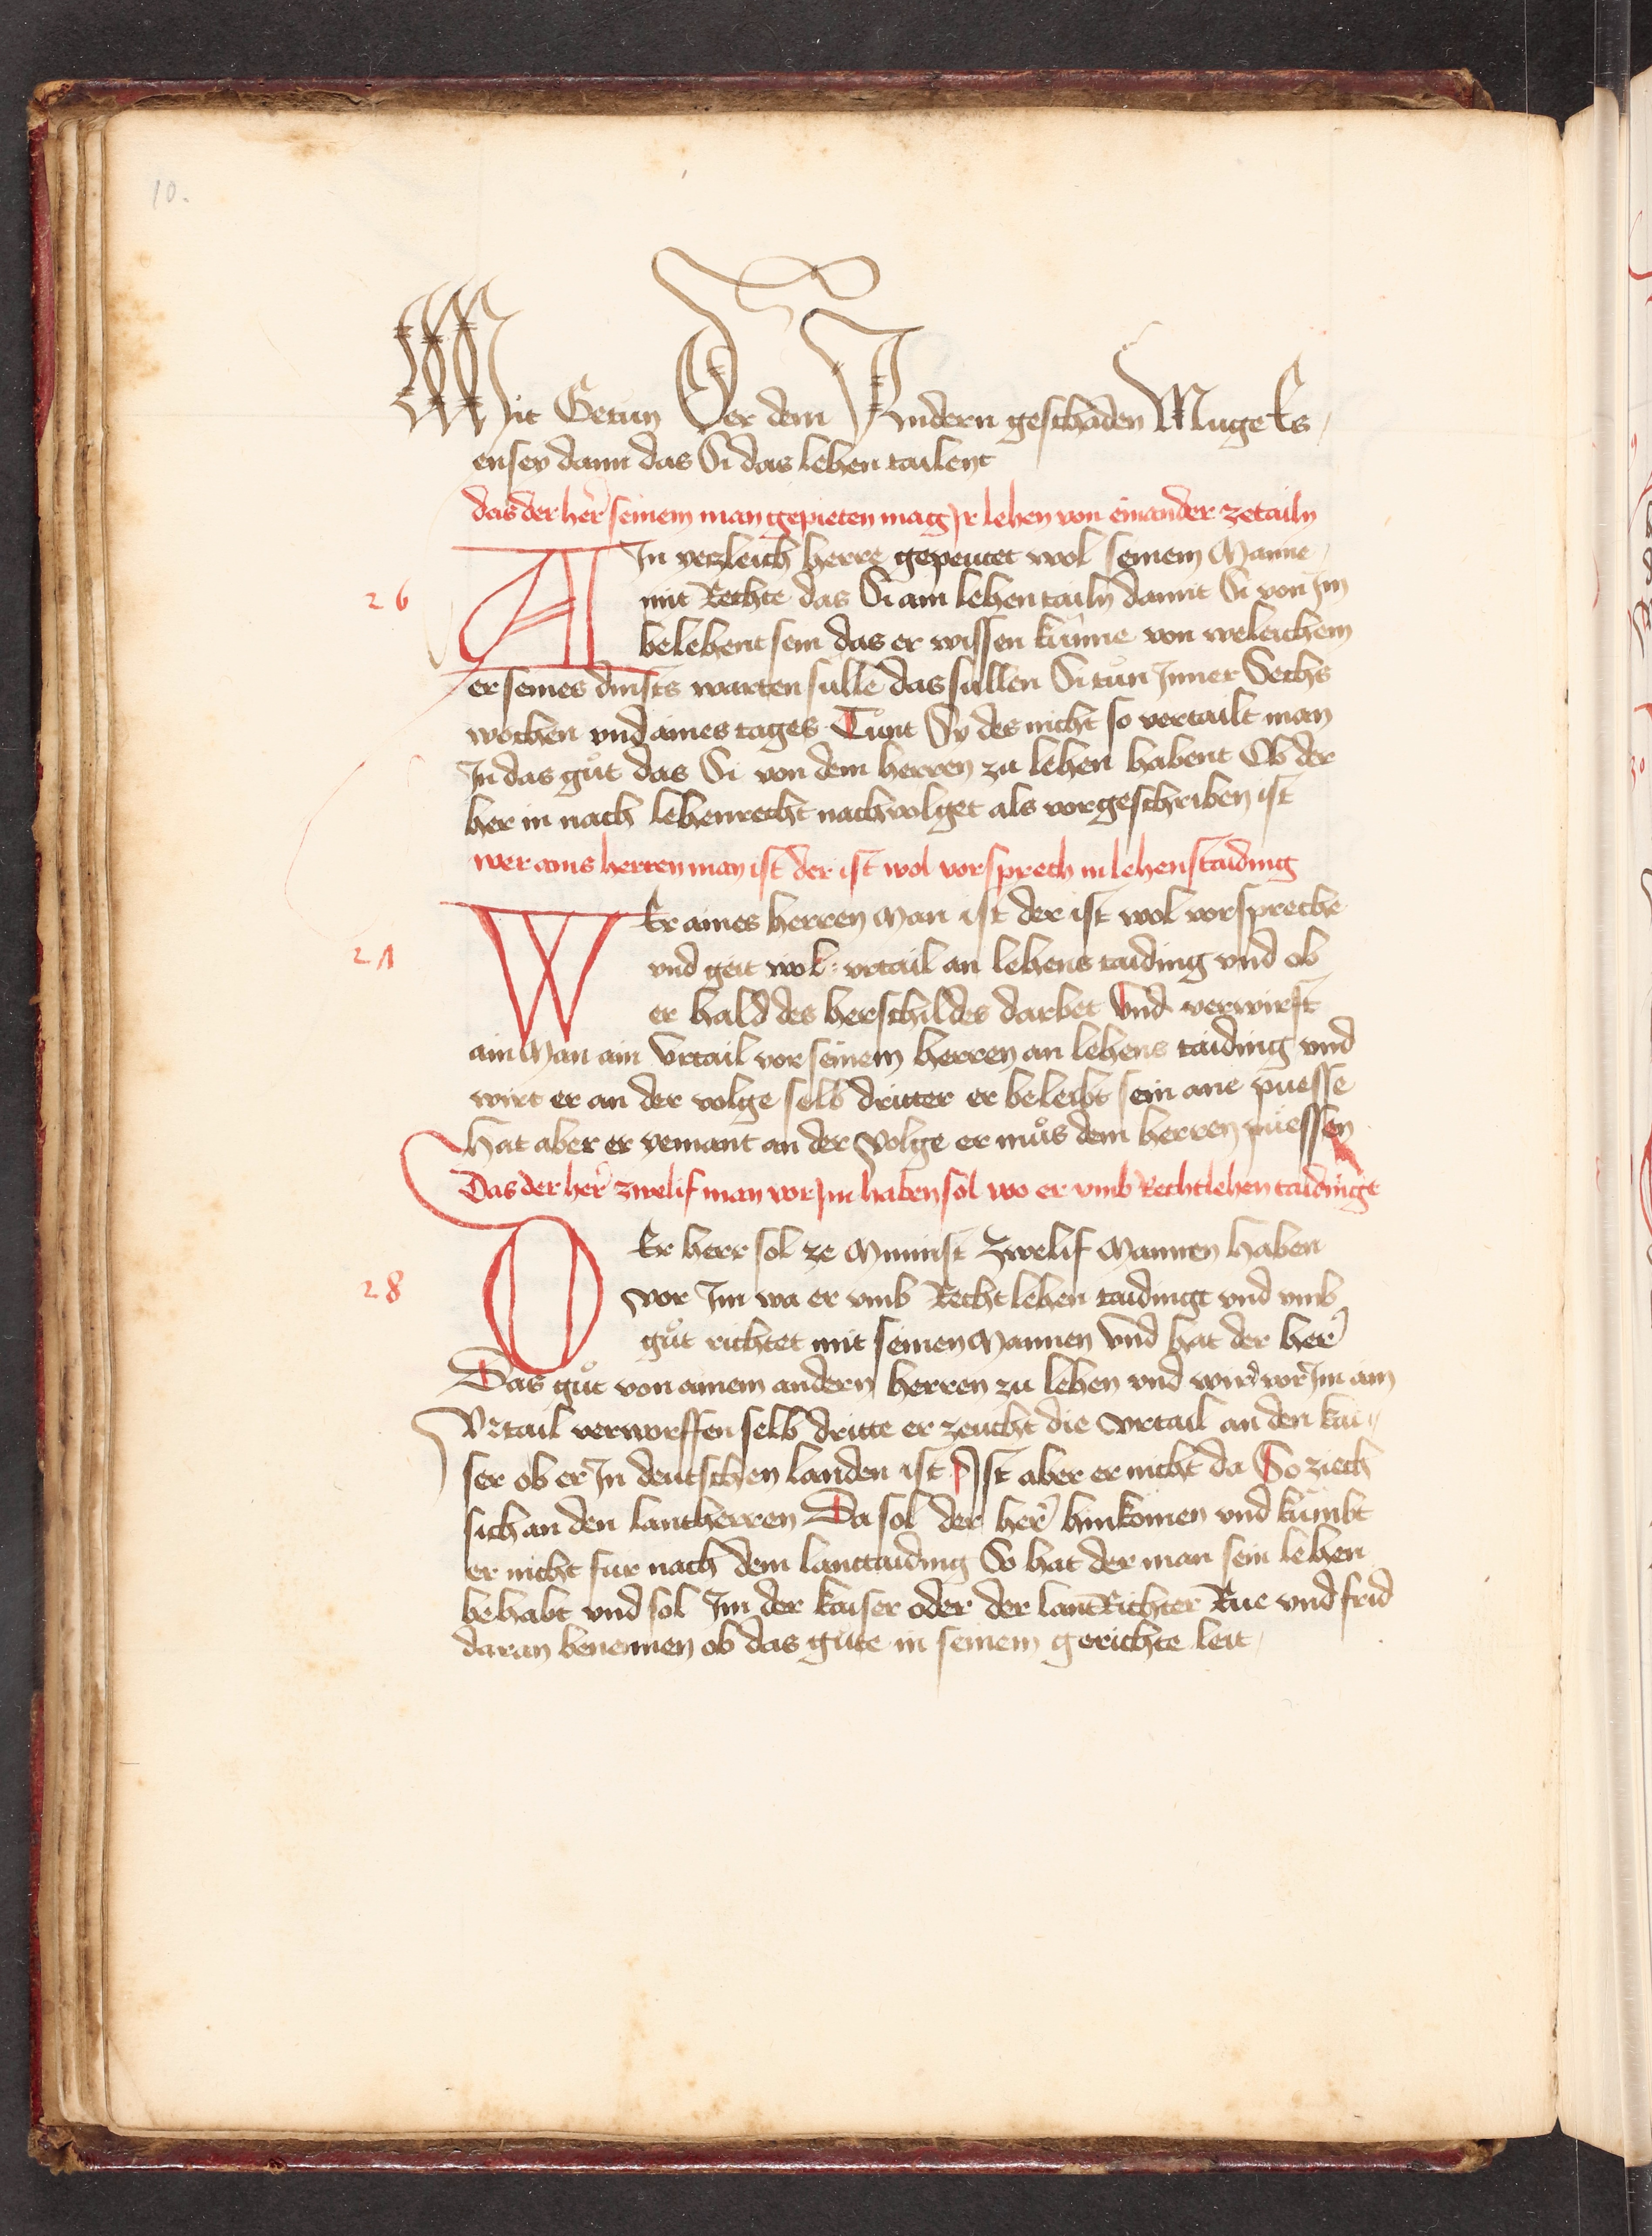 10.
Mit Getun Der dem Andern geschaden Muge Es
ensey dann das Si das lehen tailent
das der her̃ seinem man gepieten mag Ir lehen von einander zetailn
26
AIn yetzleich herre gepeutet wol seinem Manne
mit Rechte das Si ain lehen tailn damit Si von Im
belehent sein das er wissen kunne von weleichem
er seines dinsts warten sulle das sullen Si tůn Inner Sechs
wochen vnd aines tages Tůnt Sy des nicht so vertailt man
In das gůt das Si von dem herren zu lehen habent Ob der
her in nach lehenrecht nachvolget als vorgeschriben ist
wer ains herren man ist der ist wol vorsprech in lehenstaiding
27
WEr aines herren Man ist der ist wol vorspreche
vnd geit wol vrtail an lehens taiding vnd ob
er hald des herschildes darbet Vnd verwirft
ain Man ain Vrtail vor seinem herren an lehens taiding vnd
wirt er an der volge selb dritter er beleibt sein ane puesse
hat aber er yemant an der Volge er můs dem herren puessen
Das der her̃ zwelif man vor Im haben sol wo er vmb Rechtlehen taidinge
28
DEr herr sol ze Minnist Zwelif Mannen haben
vor Im wa er vmb Recht lehen taidingt vnd vmb
gůt richtet mit seinen Mannen Vnd hat der her̃
Das gůt von ainem andern herren zu lehen vnd wird vor Im ain
Vrtail verworffen selb dritte er zeucht die vrtail an den kai
ser ob er In deutschen landen ist Ist aber er nicht da So ziech
sich an den lantherren Da sol der her̃ hinkomen vnd kumbt
er nicht fur nach dem lanttaiding So hat der man sein lehen
behabt vnd sol Im der kaiser oder der lantRichter Rue vnd frid
daran benennen ob das gute in seinem gerichte leit